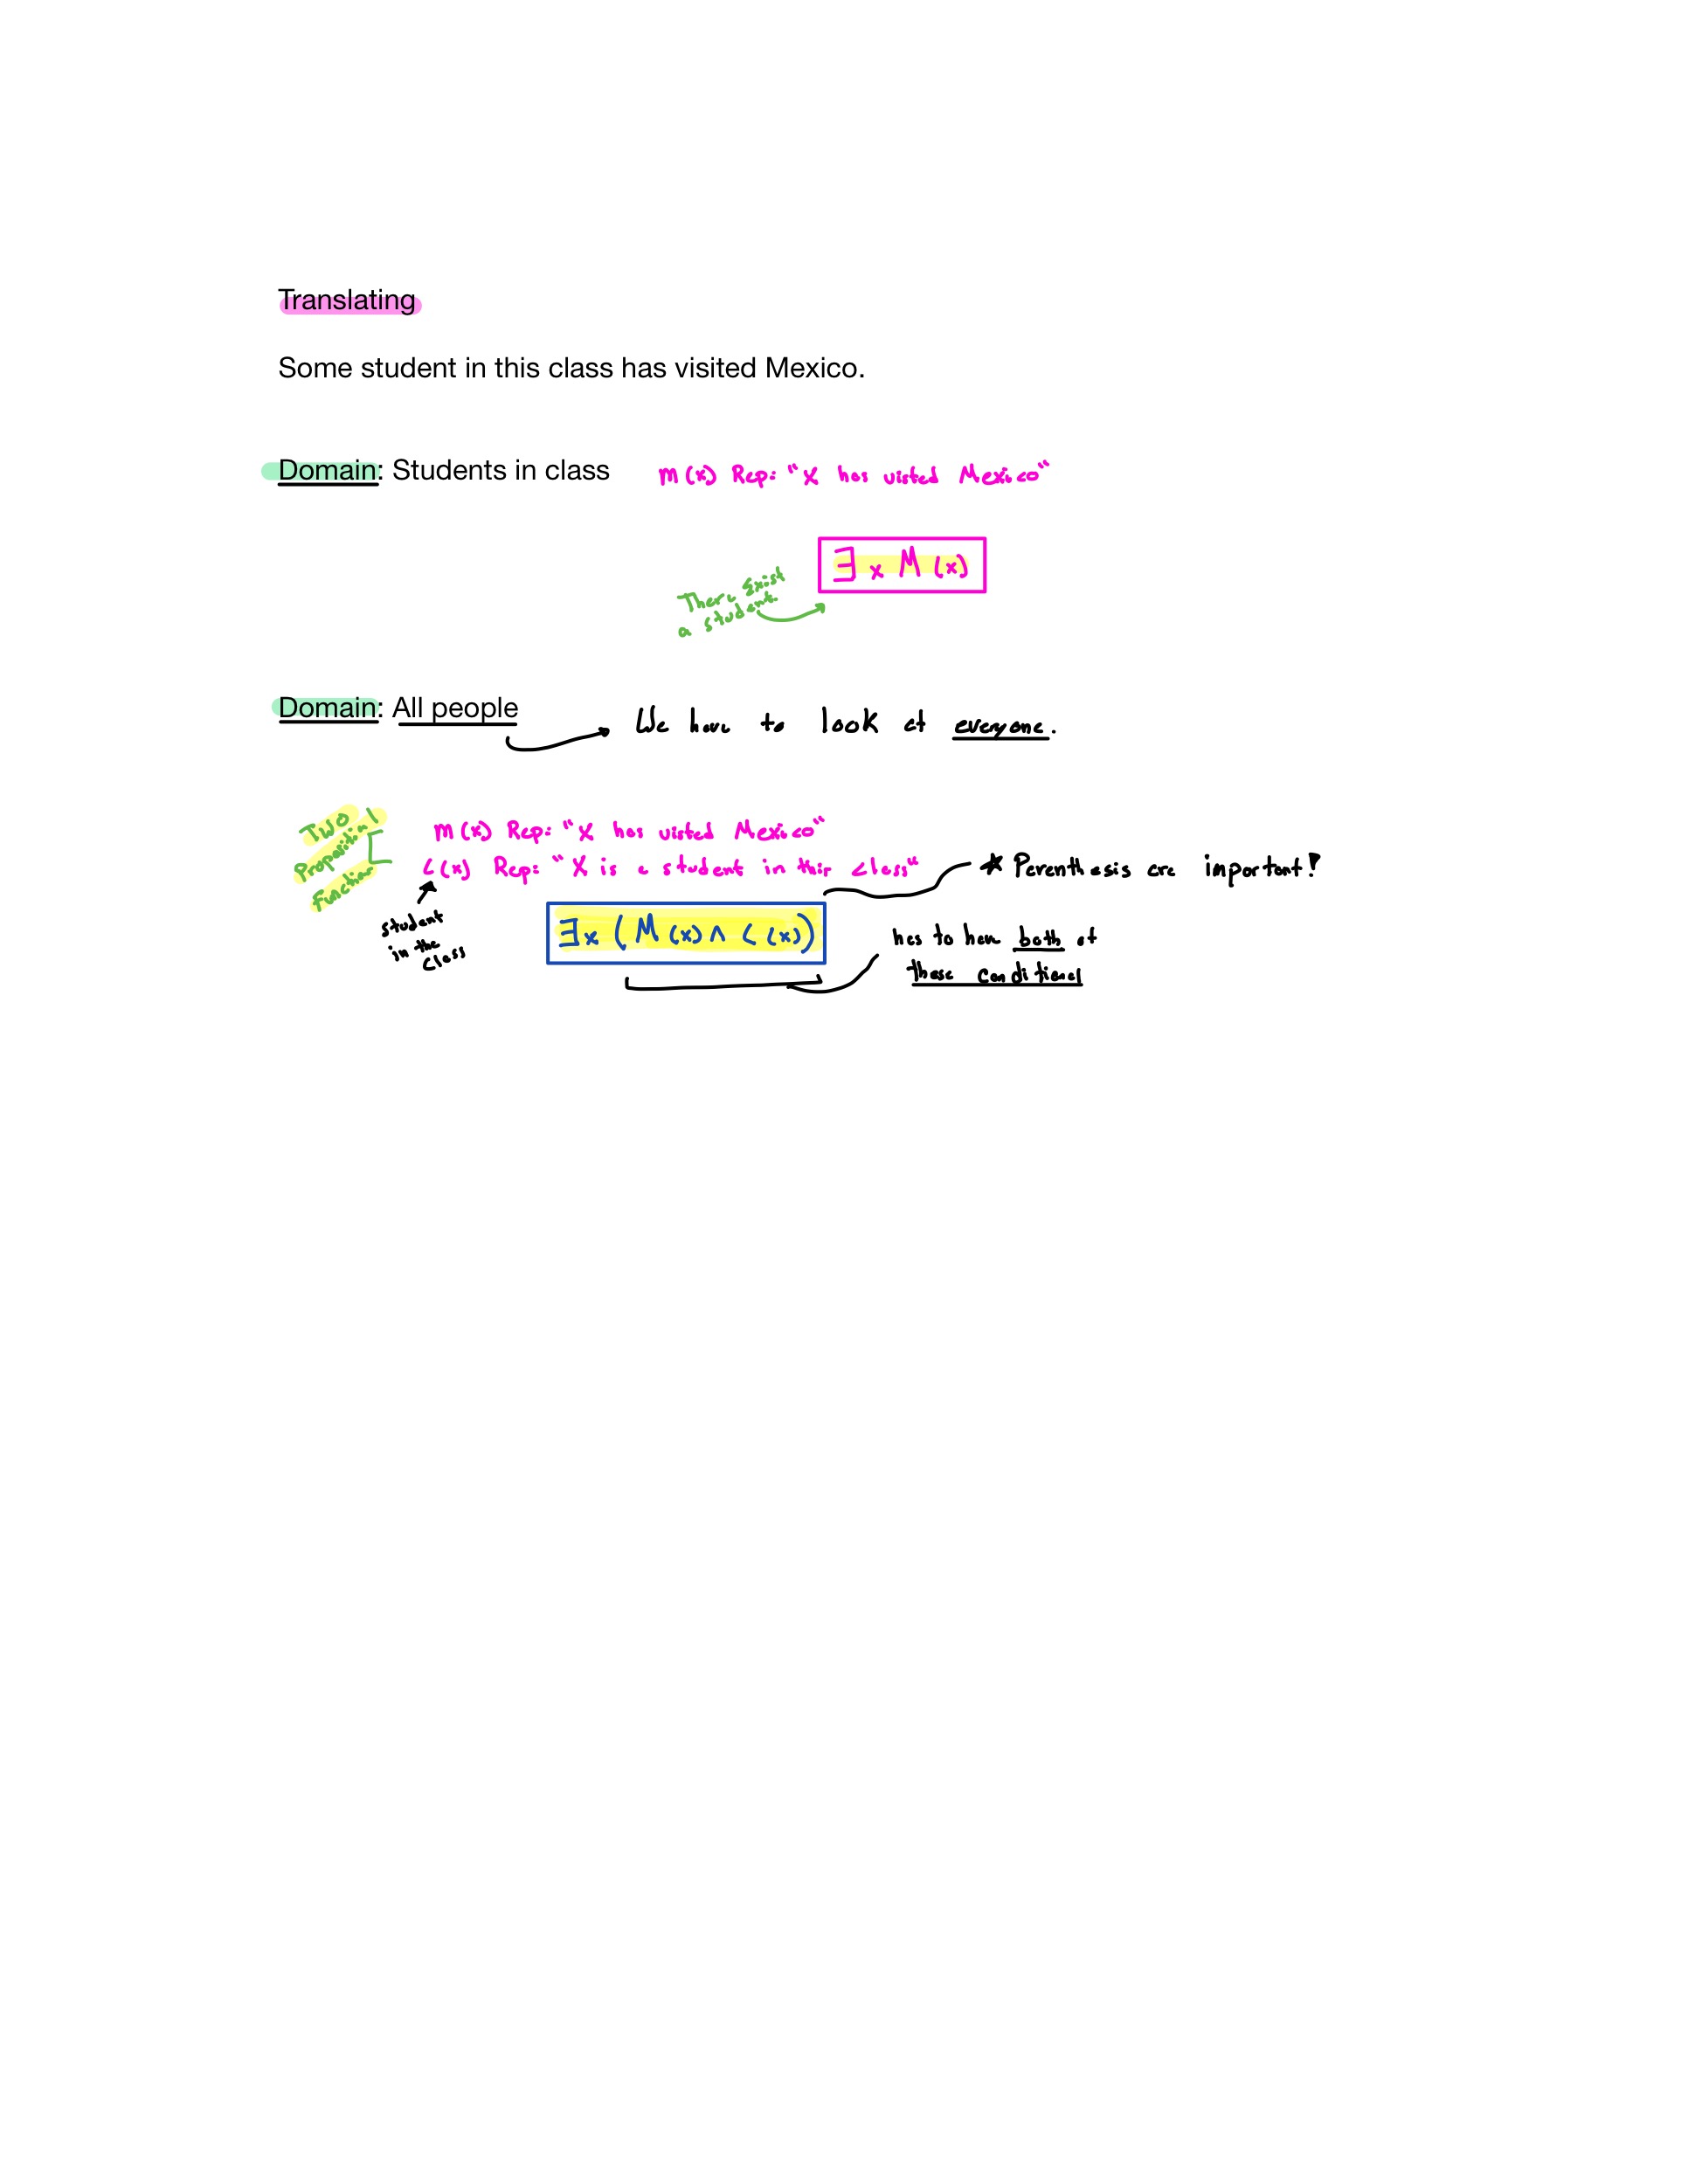 Translating
Some student in this class has visited Mexico.
Domain: Students in class
M(x) Rep: "X has visted Mexico"
∃x M(x)
There Exist
a student
Domain: All people
We have to look at everyone.
Two
Propositional
function
M(x) Rep: "X has visted Mexico"
C(x) Rep: "X is a student in this class"
* Perenthesis are important!
student
in the
class
∃x (M(x) ∧ C(x))
has to have both of
these conditional